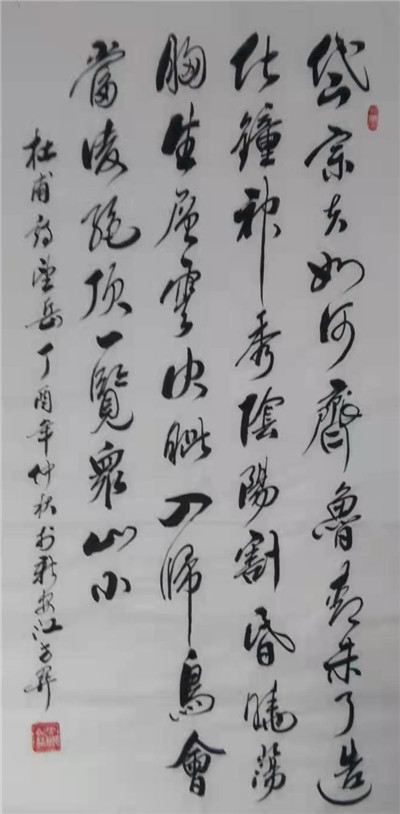 岱宗夫如何齊魯青未了造
化鐘神秀陰陽割昏曉蕩
胸生层雲决眦入歸鳥會
當凌絶頂一覽衆山小
杜甫詩望岳丁酉年仲秋於新安江